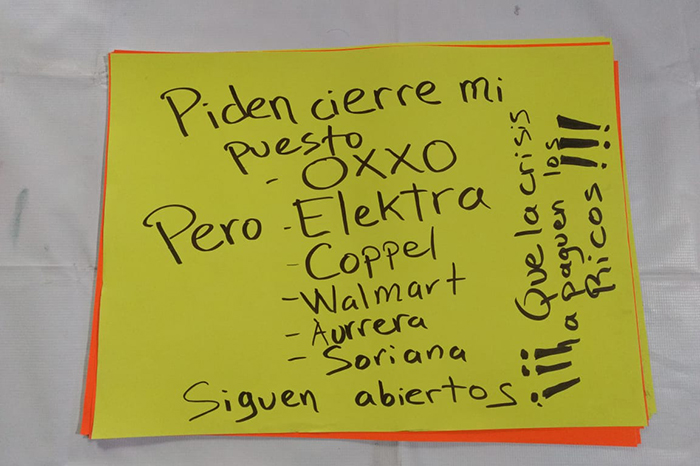 Piden cierre mi
puesto
- OXXO
Pero - Elektra
- Coppel
- Walmart
- Aurrera
- Soriana
Siguen abiertos.
¡¡¡ Que la crisis
la paguen los
Ricos !!!